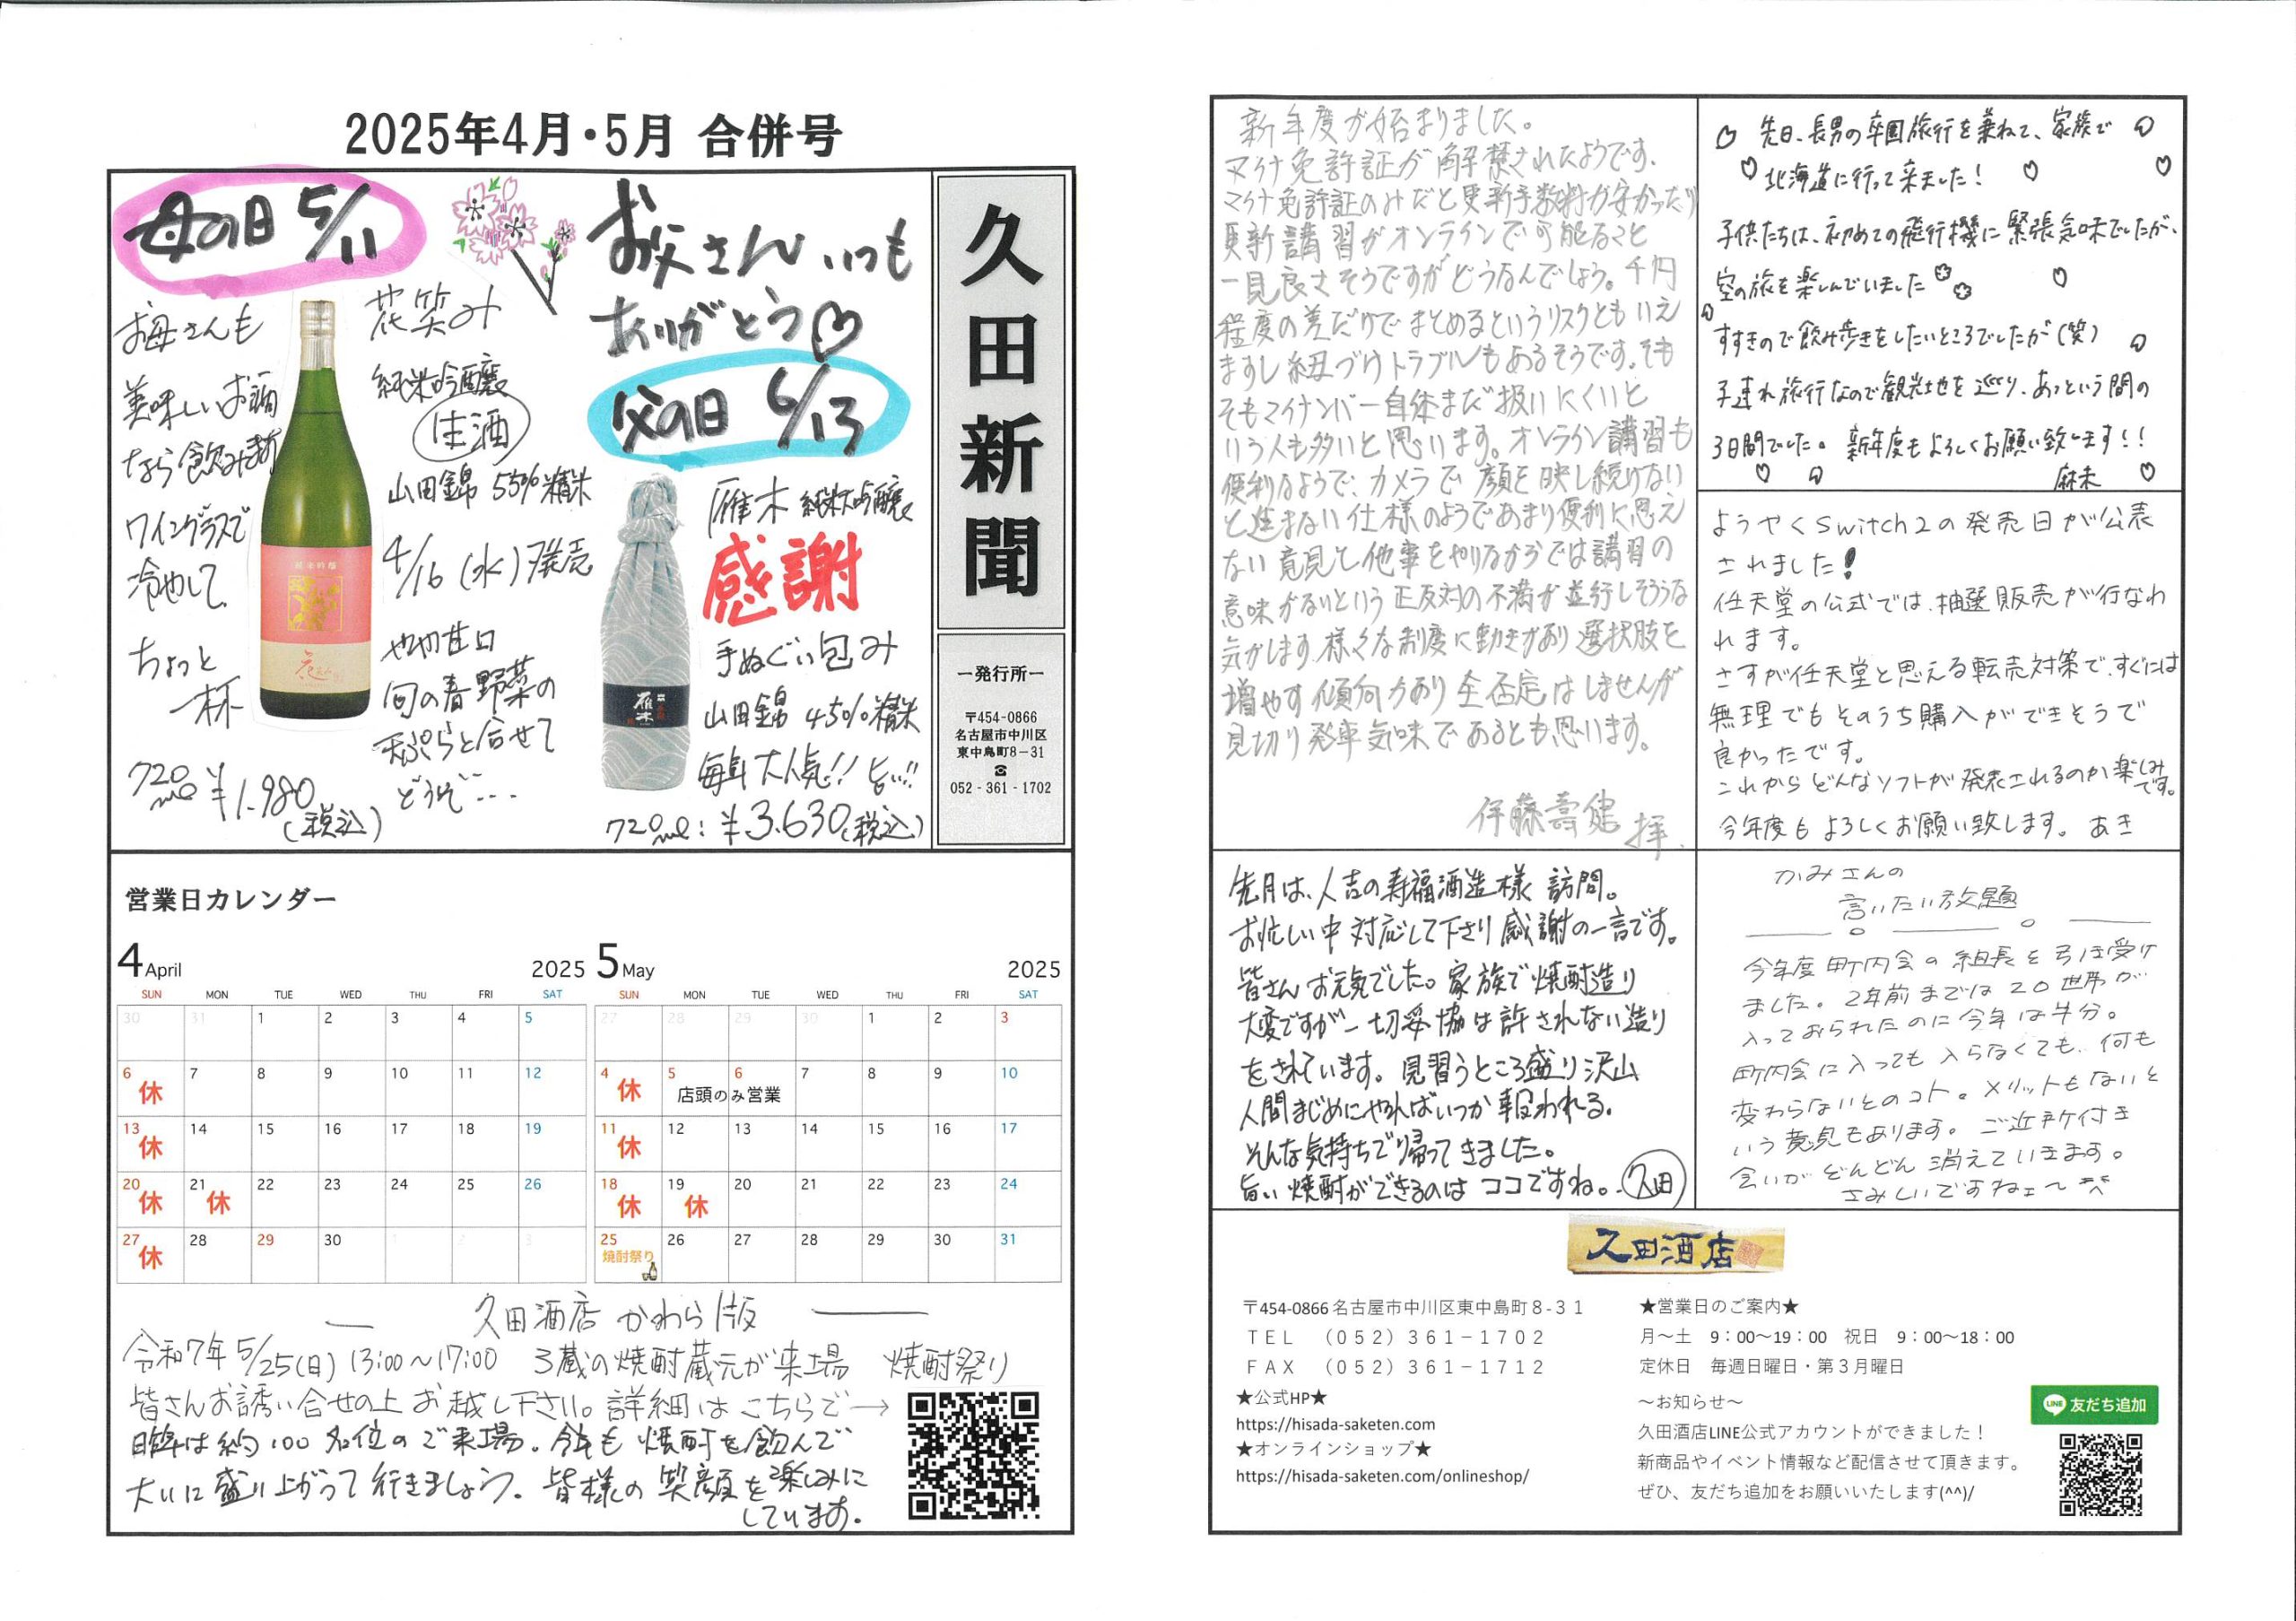 2025年4月・5月 合併号
久田新聞
ー発行所ー
〒454-0866
名古屋市中川区
東中島町8－31
☎
052‐361‐1702
母の日 5/11
お母さんも
美味しいお酒
なら飲みます
ワイングラスで
冷やして、
ちょっと
一杯
720ml ¥1.980
(税込)
花笑み
純米吟醸
生酒
山田錦 55%精米
4/16(水)発売
やや甘口
旬の春野菜の
天ぷらと合せて
どうぞ…
純米吟醸
お父さんいつも
ありがとう♡
父の日 6/13
雁木 純米大吟醸
感謝
手ぬぐい包み
山田錦 45%精米
毎年大人気!! 旨い!!
720ml:¥3.630(税込)
雁木
営業日カレンダー
4 April 2025
SUN MON TUE WED THU FRI SAT
30 31 1 2 3 4 5
6 休 7 8 9 10 11 12
13 休 14 15 16 17 18 19
20 休 21 休 22 23 24 25 26
27 休 28 29 30 1 2 3
5 May 2025
SUN MON TUE WED THU FRI SAT
27 28 29 30 1 2 3
4 休 5 6 店頭のみ営業 7 8 9 10
11 休 12 13 14 15 16 17
18 休 19 休 20 21 22 23 24
25 焼酎祭り 26 27 28 29 30 31
久田酒店 かわら版
令和7年5/25(日)13:00～17:00 3蔵の焼酎蔵元が来場 焼酎祭り
皆さんお誘い合せの上お越し下さい。詳細はこちらで→
昨年は約100名位のご来場。今年も焼酎を飲んで
大いに盛り上がって行きましょう。皆様の笑顔を楽しみに
しています。
新年度が始まりました。
マイナ免許証が解禁されたようです、
マイナ免許証のみだと更新手数料が安かったり
更新講習がオンラインで可能なこと
一見良さそうですがどうなんでしょう。千円
程度の差だけでまとめるというリスクともいえ
ますし紐づけトラブルもあるそうです。そも
そもマイナンバー自体まだ扱いにくいと
いう人も多いと思います。オンライン講習も
便利なようで、カメラで顔を映し続けない
と進まない仕様のようであまり便利に思え
ない意見と他事をやりながらでは講習の
意味がないという正反対の不満が並行しそうな
気がします。様々な制度に動きがあり選択肢を
増やす傾向があり全否定はしませんが
見切り発車気味であるとも思います。
伊藤壽健 拝
先日、長男の卒園旅行を兼ねて、家族で
北海道に行って来ました!
子供たちは、初めての飛行機に緊張気味でしたが、
空の旅を楽しんでいました
すすきので飲み歩きをしたいところでしたが(笑)
子連れ旅行なので観光地を巡り、あっという間の
3日間でした。新年度もよろしくお願い致します!!
麻未
ようやくSwitch2の発売日が公表
されました!
任天堂の公式では、抽選販売が行なわ
れます。
さすが任天堂と思える転売対策で、すぐには
無理でもそのうち購入ができそうで
良かったです。
これからどんなソフトが発表されるのか楽しみ
です。
今年度もよろしくお願い致します。 あき
先月は、人吉の寿福酒造様 訪問。
お忙しい中対応して下さり感謝の一言です。
皆さんお元気でした。家族で焼酎造り
大変ですが一切妥協は許されない造り
をされています。見習うところ盛り沢山
人間まじめにやればいつか報われる。
そんな気持ちで帰ってきました。
旨い焼酎ができるのはココですね。久田
かみさんの
言いたい放題
今年度町内会の組長を引き受け
ました。2年前までは20世帯が
入っておられたのに今年は半分。
町内会に入っても入らなくても、何も
変わらないとのコト。メリットもないと
いう意見もあります。ご近所付き
合いがどんどん消えていきます。
さみしいですねェ～
久田酒店
〒454-0866 名古屋市中川区東中島町８-３１
ＴＥＬ （０５２）３６１－１７０２
ＦＡＸ （０５２）３６１－１７１２
★公式HP★
https://hisada-saketen.com
★オンラインショップ★
https://hisada-saketen.com/onlineshop/
★営業日のご案内★
月～土 9：00～19：00 祝日 9：00～18：00
定休日 毎週日曜日・第３月曜日
～お知らせ～
久田酒店LINE公式アカウントができました！
新商品やイベント情報など配信させて頂きます。
ぜひ、友だち追加をお願いいたします(^^)/
LINE 友だち追加